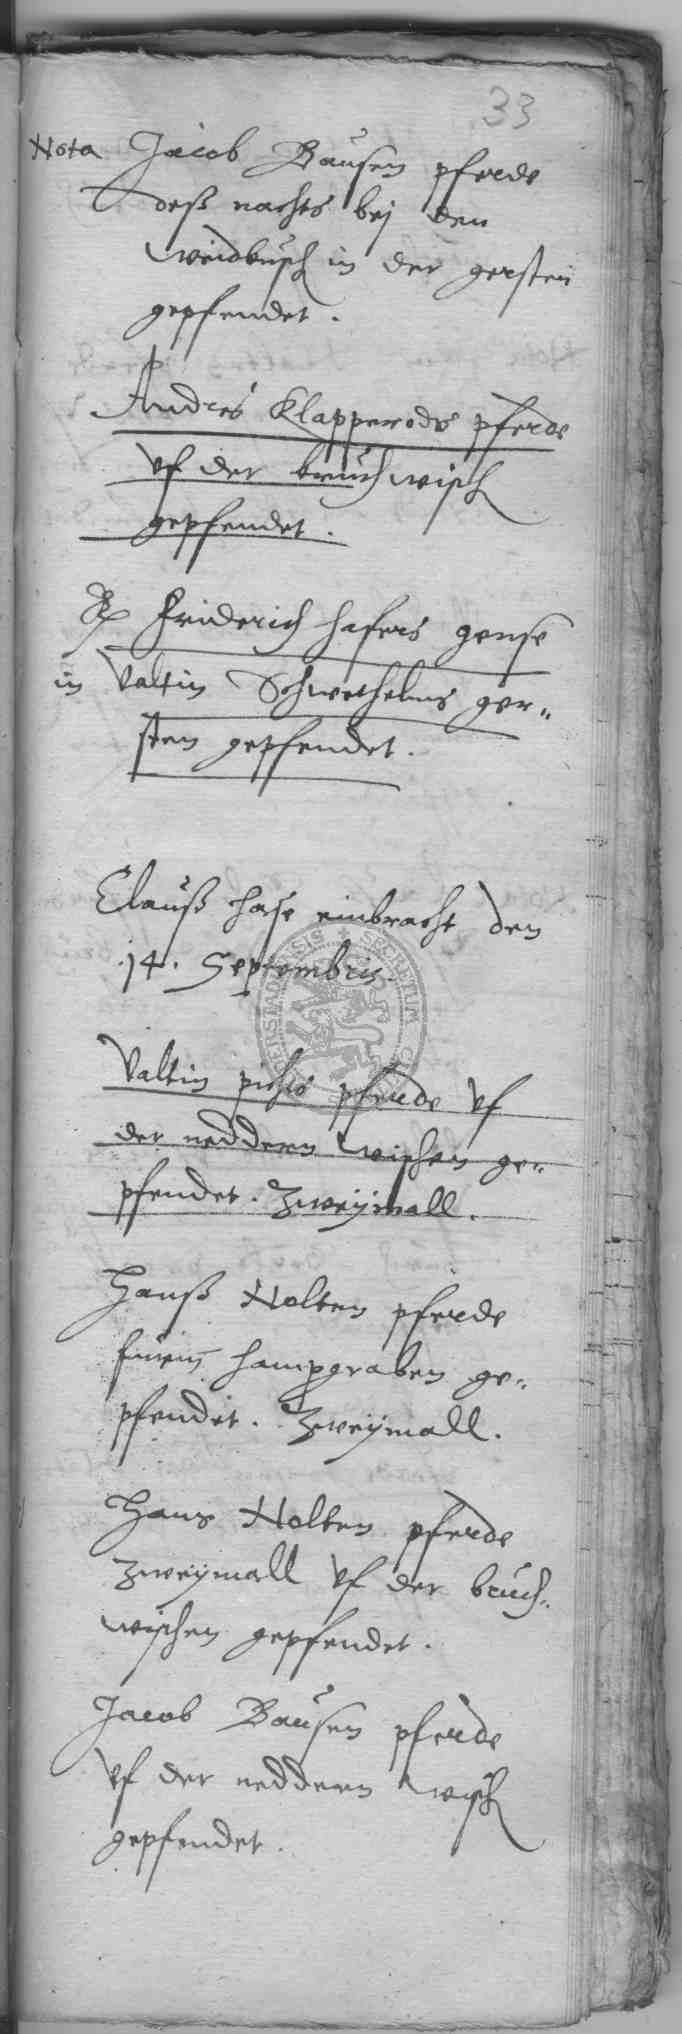 33
Nota Jacob Bausen pferde
deß nachts bej den
weidbusch in der gersten
gepfendet.
Andres Klapperods pferde
vf der bruch wisch
gepfendet.
Friderich hafers gense
in Valtin Schwethelms ger„
sten gepfendet.
Clauß hase einbracht den
14. Septembris.
Valtin pferde vf
der neddern wischen ge„
pfendet. Zweymall.
Hanß Nolten pferde
hampgraben ge„
pfendet. Zweymall.
Hans Nolten pferde
zweymall vf der bruch„
wischen gepfendet.
Jacob Bausen pferde
vf der neddern wisch
gepfendet.
SECRETUM